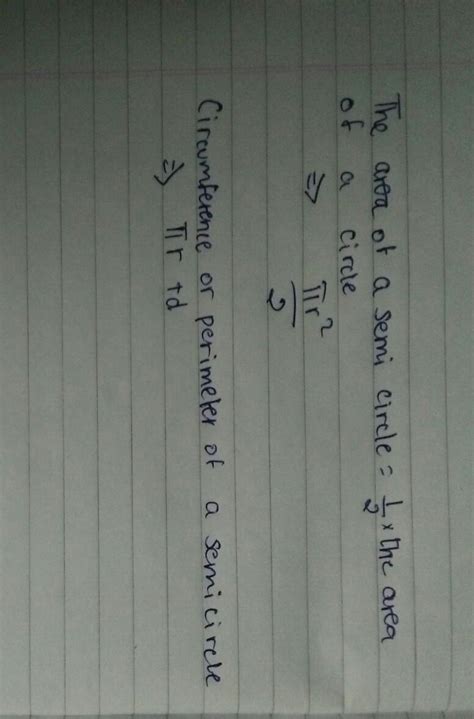 The area of a semi circle = 1/2 × the area
of a circle
⇒ πr²/2
Circumference or perimeter of a semicircle
⇒ πr + d